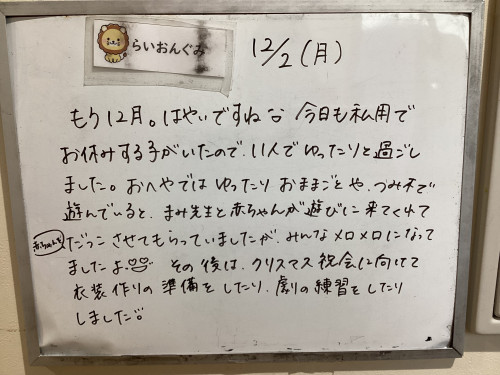 らいおんぐみ
12/2(月)
もう12月。はやいですねな 今日も私用で
お休みする子がいたので、11人でゆったりと過ごし
ました。おへやでは ゆったり おままごとや、つみ木で
遊んでいると、まみ先生と赤ちゃんが遊びに来てくれて
赤ちゃんを
だっこ させてもらっていましたが、みんなメロメロになって
ましたよ。 その後は、クリスマス祝会に向けて
衣装作りの準備をしたり、劇の練習をしたり
しました。